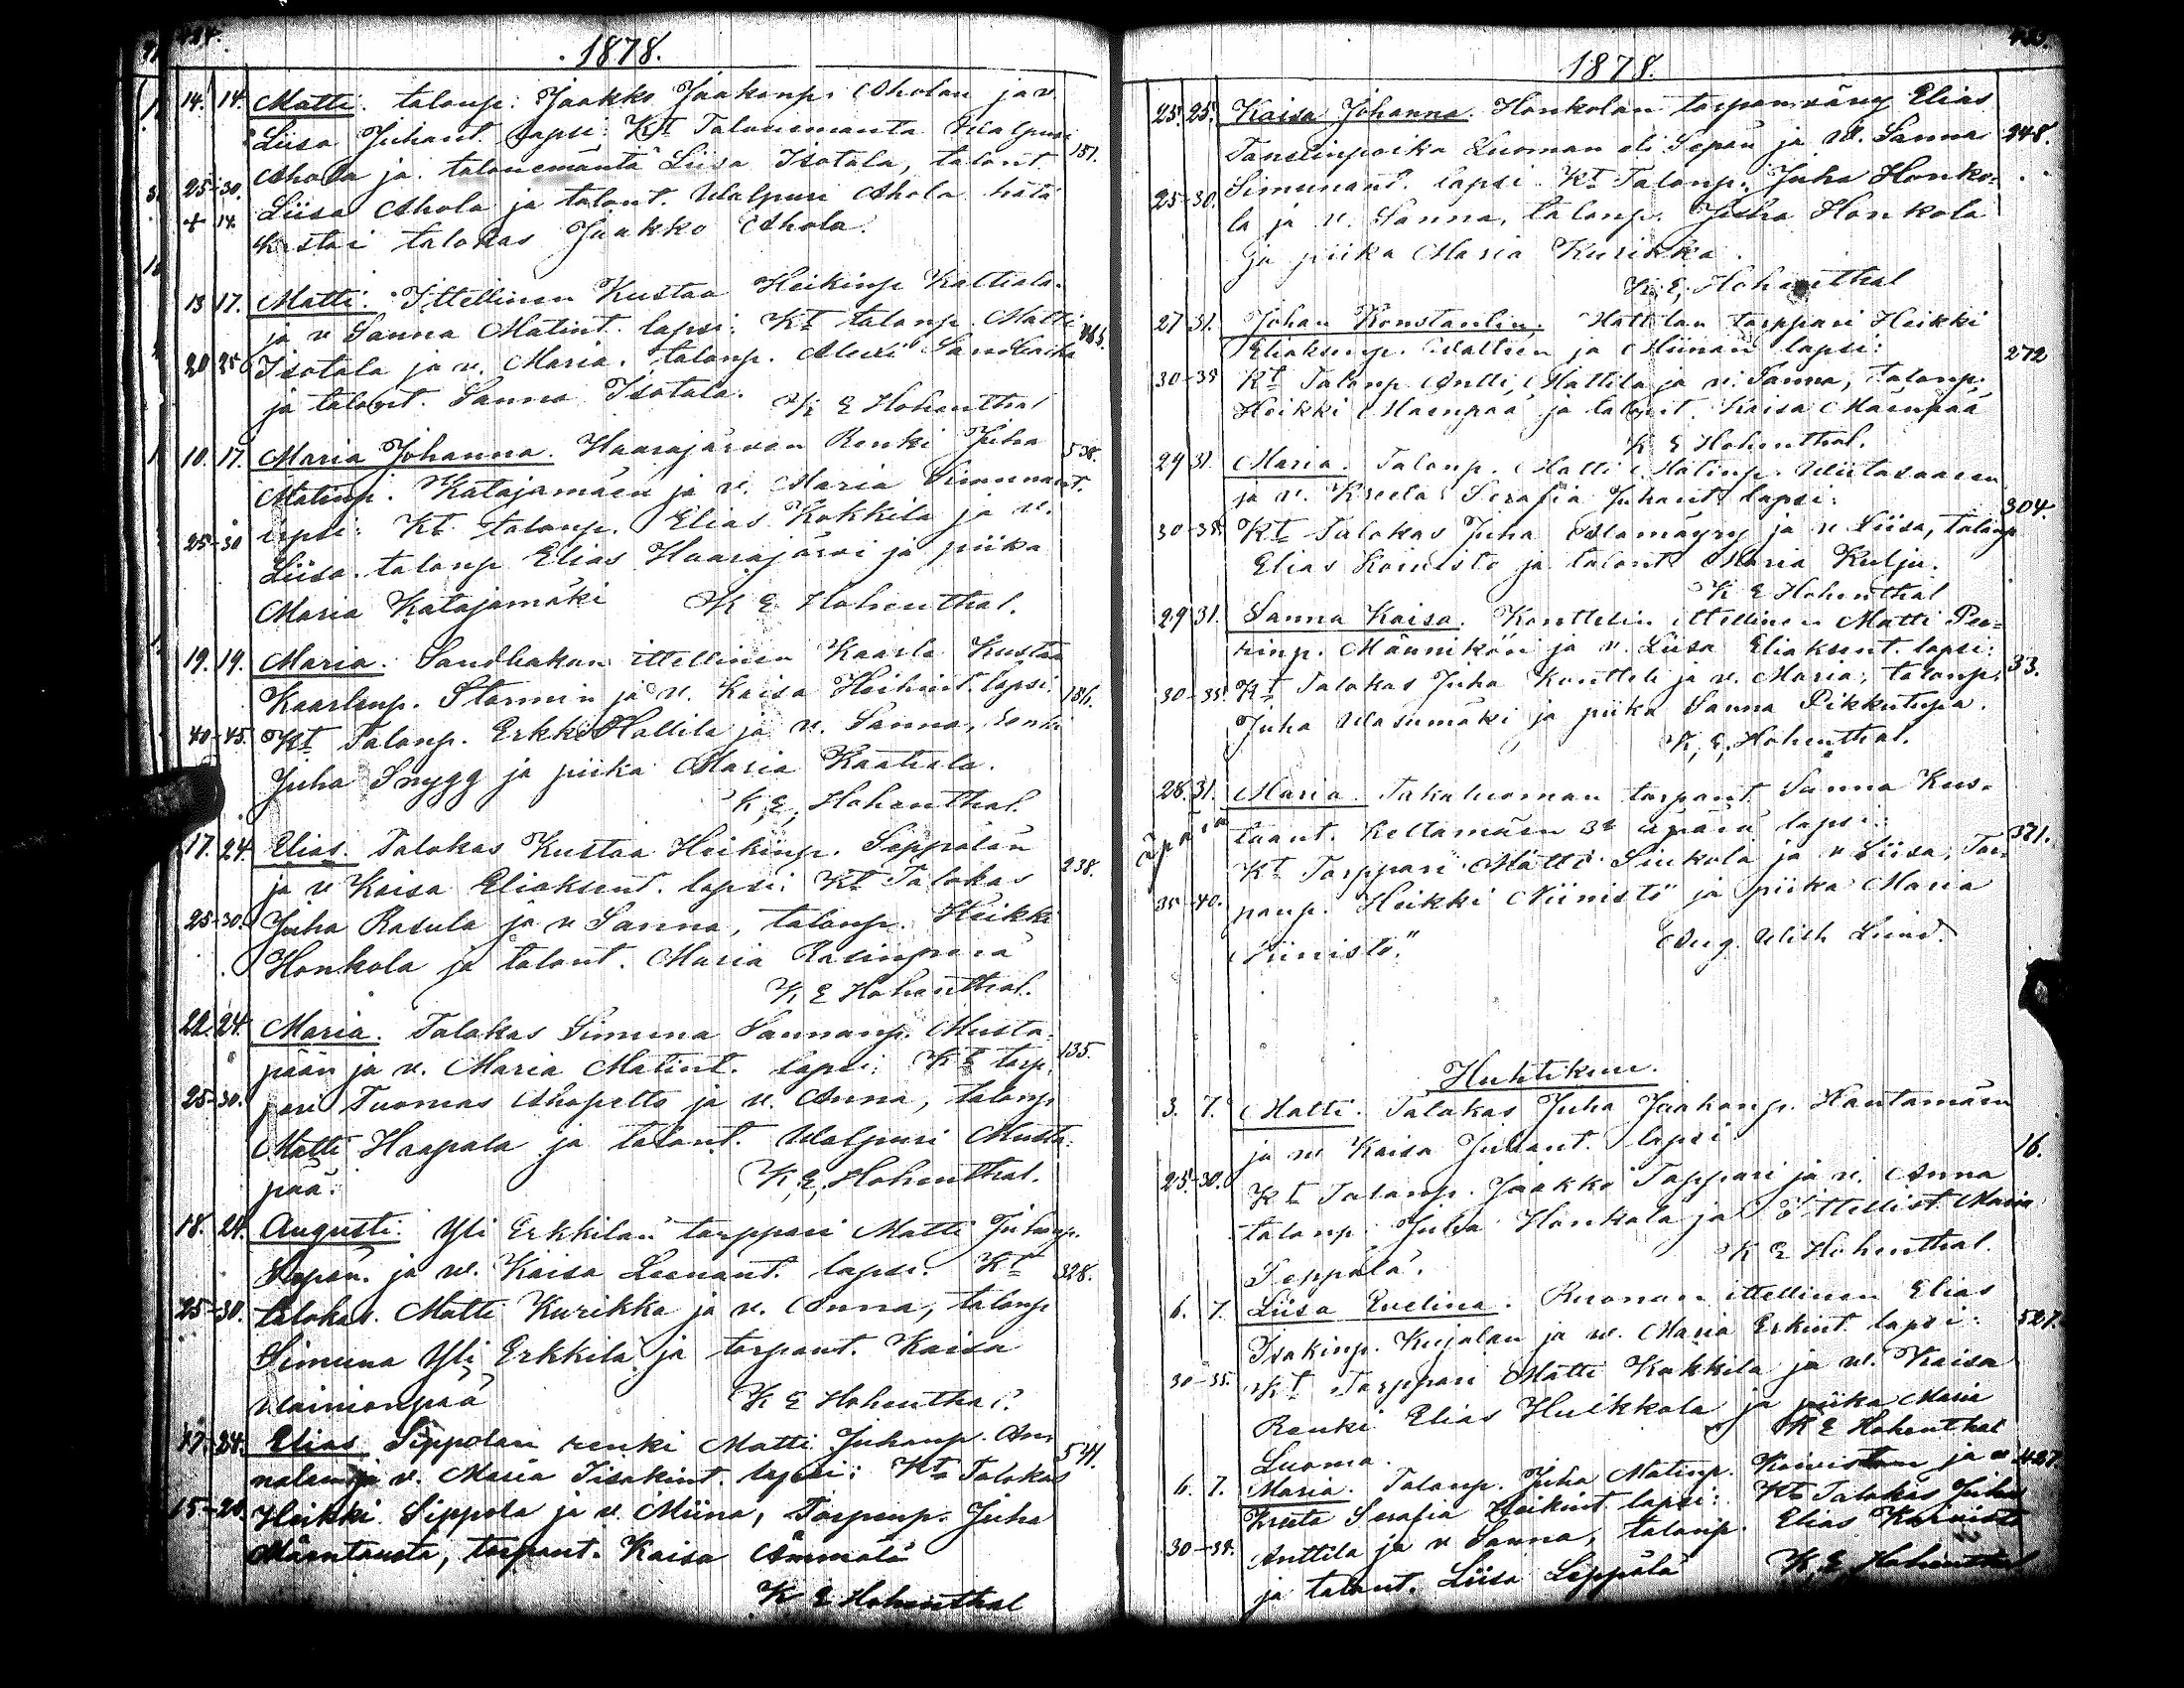 1878.
14. 14. Matti. talonp. Jaakko Jaakonp. Aholan ja v.
Liisa Juhant. lapsi: Kt Talonemäntä Walpuri
Ahola ja talonemäntä Liisa Isotala, talont. 151.
25-30. Liisa Ahola ja talont. Walpuri Ahola hätä
+ 14. kastoi talokas Jaakko Ahola.
13 17. Matti. Ittellinen Kustaa Heikinp. Kaltiala.
ja v Sanna Matint. lapsi: Kt talonp. Matti
20 25 Isotala ja v. Maria. talonp. Aleksi
ja talont. Sanna Isotala. K E Hohenthal
10. 17. Maria Johanna. Haarajärven Renki Juha 538.
Matinp. Katajamäen ja v. Maria Simunant.
lapsi: Kt talonp. Elias Kokkila ja v.
25-30 Liisa. talonp Elias Haarajärvi ja piika
Maria Katajamäki K E Hohenthal.
19. 19. Maria. Sandbakan ittellinen Kaarle Kustaa
Kaarlenp. Stormin ja v. Kaisa Heikint. lapsi. 186.
40-45. Kt Talonp. Erkki Hallila ja v. Sanna, renki
Juha Snygg ja piika Maria Kaatiala.
K, E, Hohenthal.
17. 24. Elias. Talokas Kustaa Heikinp. Seppälän
ja v Kaisa Eliaksent. lapsi: Kt Talokas 238.
25-30. Juha Rasula ja v Sanna, talonp. Heikki
Honkola ja talont. Maria Rasinperä
K E Hohenthal.
22. 24. Maria. Talokas Simuna Sannanp. Musta-
pään ja v. Maria Matint. lapsi: Kt torp- 135.
25-30. pari Tuomas Ahopelto ja v. Anna, talonp
Matti Haapala ja talont. Walpuri Musta-
pää. K, E, Hohenthal.
18. 24. Augusti. Yli Erkkilän torppari Matti Juhanp.
Sepän. ja v. Kaisa Leenant. lapsi. Kt 328.
25-30. talokas. Matti Kurikka ja v. Anna, talonp
Simuna Yli Erkkilä ja torpant. Kaisa
Wainionpää K E Hohenthal.
17. 24. Elias Sippolan renki Matti Juhanp. An-
nalan ja v. Maria Iisakint. lapsi: Kt Talokas 541.
15-20. Heikki Sippola ja v. Miina, Torpanp. Juha
Mäentausta, torpant. Kaisa Ämmälä
K E Hohenthal
1878.
25. 25. Kaisa Johanna. Honkolan torpanvävy Elias
Tanelinpoika Luoman eli Sepän ja v. Sanna 248.
25-30. Simunant. lapsi Kt Talonp. Juha Honko-
la ja v. Sanna, talonp. Juha Honkola
ja piika Maria Kurikka.
K, E, Hohenthal
27 31. Johan Konstantin. Mattilan torppari Heikki
Eliaksenp. Waltien ja Miinan lapsi: 272
30-35 Kt Talonp Antti Mattila ja v. Sanna, talonp.
Heikki Mäenpää ja talont. Kaisa Mäenpää
K E Hohenthal.
29 31. Maria. Talonp. Matti Matinp. Wiitasaaren
ja v. Kreeta Serafia Juhant. lapsi: 304.
30-35 Kt Talokas Juha Alamäyry ja v Liisa, talonp
Elias Koivisto ja talont. Maria Kulju.
K E Hohenthal
29 31. Sanna Kaisa. Konttelin ittellinen Matti Pea-
rinp. Männikön ja v. Liisa Eliaksent. lapsi: 33.
30-35. Kt Talokas Juha Kontteli ja v. Maria, talonp.
Juha Wasumäki ja piika Sanna Pikkutupa.
K, E, Hohenthal.
28. 31. Maria. Takaluoman torpant Sanna Kus-
äpärä taant. Keltamäen 3s äpärä lapsi:
Kt Torppari Matti Sinkola ja v Liisa, Tor- 371.
35-40. panp. Heikki Niinistö ja piika Maria
Niinistö. Aug. Wilh Lund.
Huhtikuu.
3. 7. Matti. Talokas Juha Jaakonp. Hautamäen
ja v Kaisa Juhant. lapsi. 16.
25-30. Kt Talonp. Jaakko Tappari ja v. Anna
talonp. Juha Honkola ja Ittellist. Maria
Seppälä. K E Hohenthal.
6. 7. Liisa Evelina. Ruonan ittellinen Elias
Isakinp. Kujalan ja v. Maria Erkint. lapsi: 527.
30-35. Kt Torppari Matti Kokkila ja v. Kaisa
Renki Elias Huikkola ja piika Maria
Luoma. K E Hohenthal
6. 7. Maria. Talonp. Juha Matinp. Koiviston ja v 427.
Kreeta Serafia Heikint. lapsi: Kt Talokas Juha
30-35. Anttila ja v Sanna, talonp. Elias Koivisto
ja talont. Liisa Leppälä K, E, Hohenthal